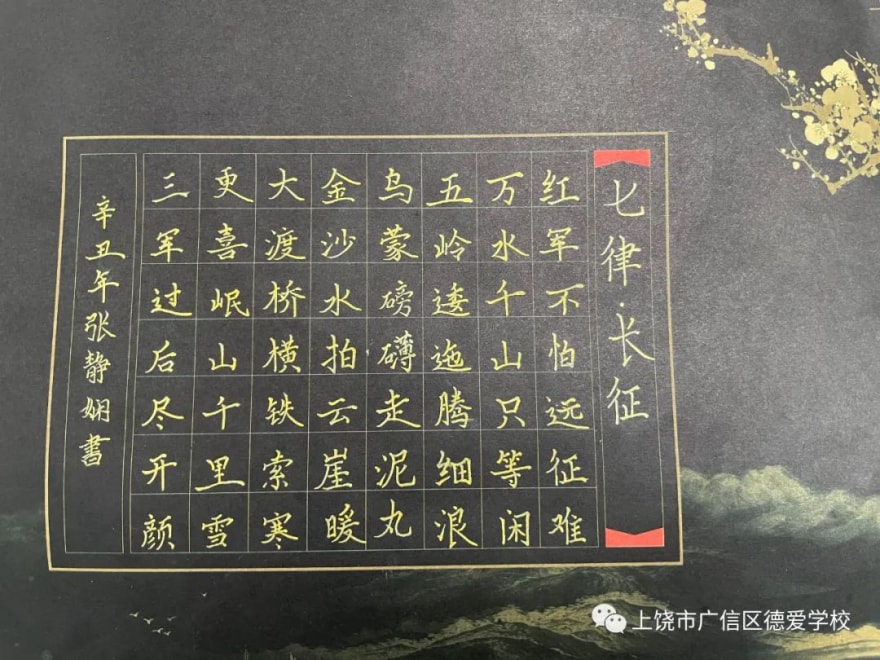 七律·长征
红军不怕远征难
万水千山只等闲
五岭逶迤腾细浪
乌蒙磅礴走泥丸
金沙水拍云崖暖
大渡桥横铁索寒
更喜岷山千里雪
三军过后尽开颜
辛丑年张静娴书
上饶市广信区德爱学校